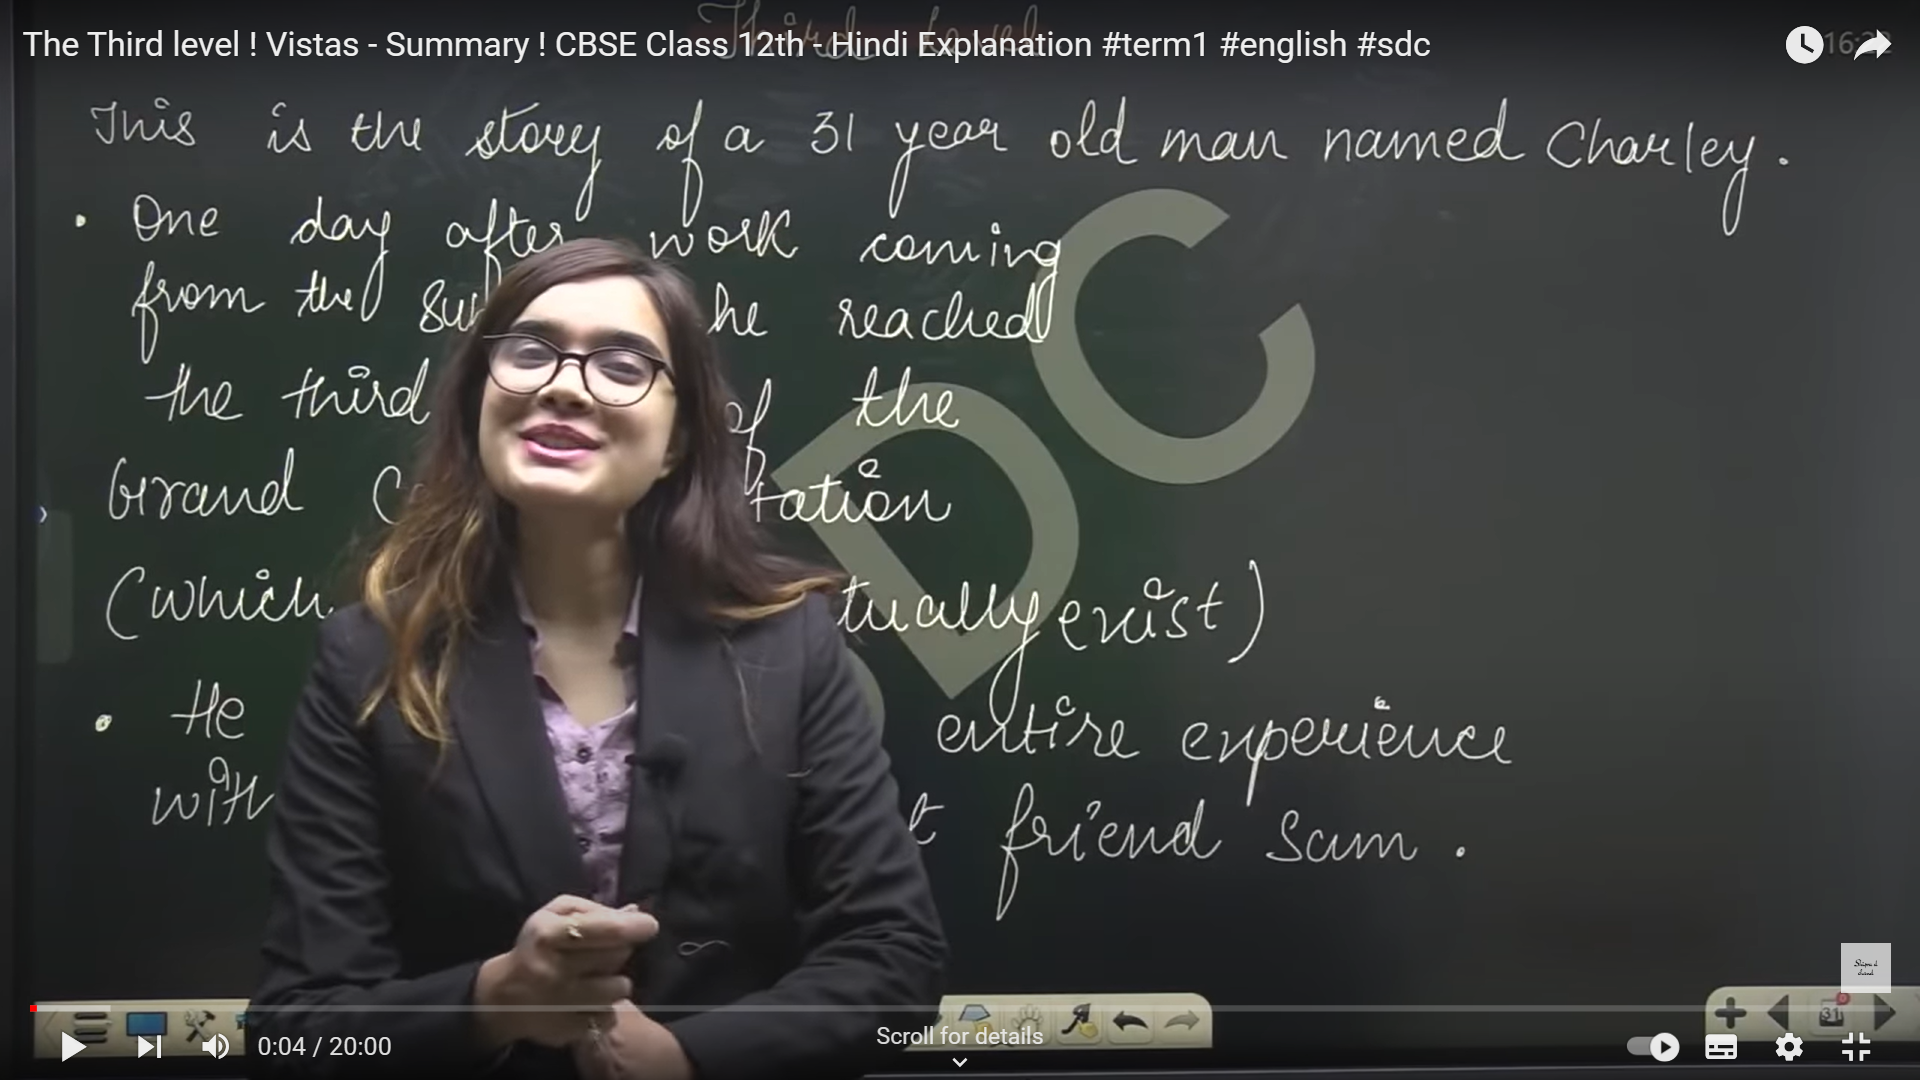 Third Level
The Third level ! Vistas - Summary ! CBSE Class 12th - Hindi Explanation #term1 #english #sdc
This is the story of a 31 year old man named Charley.
• One day after work coming
from the he reached
the third of the
Grand
(which exist)
• He entire experience
with friend Sam.
DC
31
0:04 / 20:00
Scroll for details